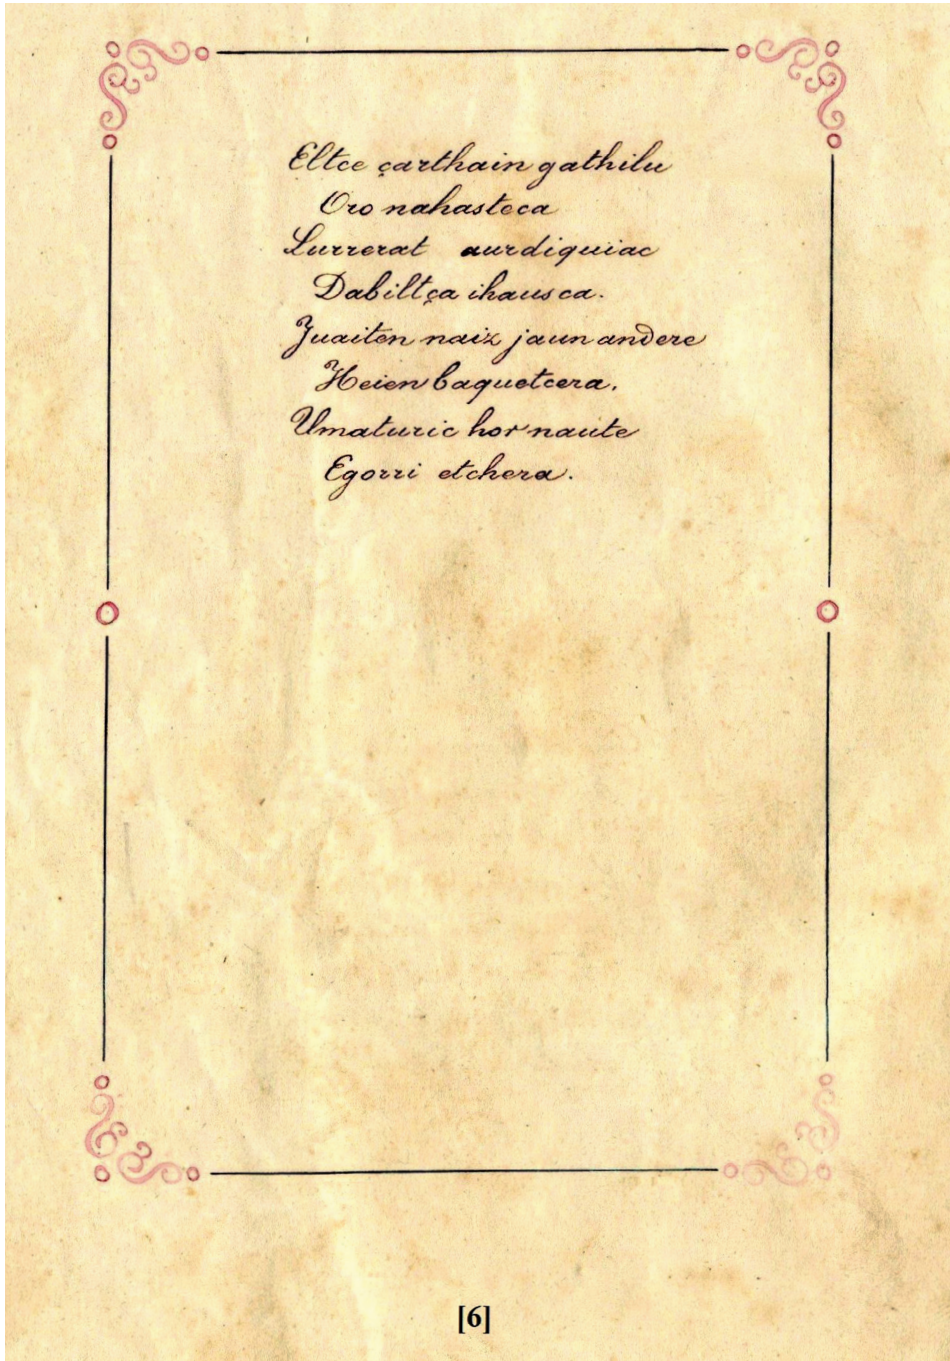 Eltce çarthain gathilu
Oro nahasteca
Lurrerat aurdiquiac
Dabiltça ihausca.
Juaiten naiz jaun andere
Heien baquetcera.
Umaturic hor naute
Egorri etchera.
[6]